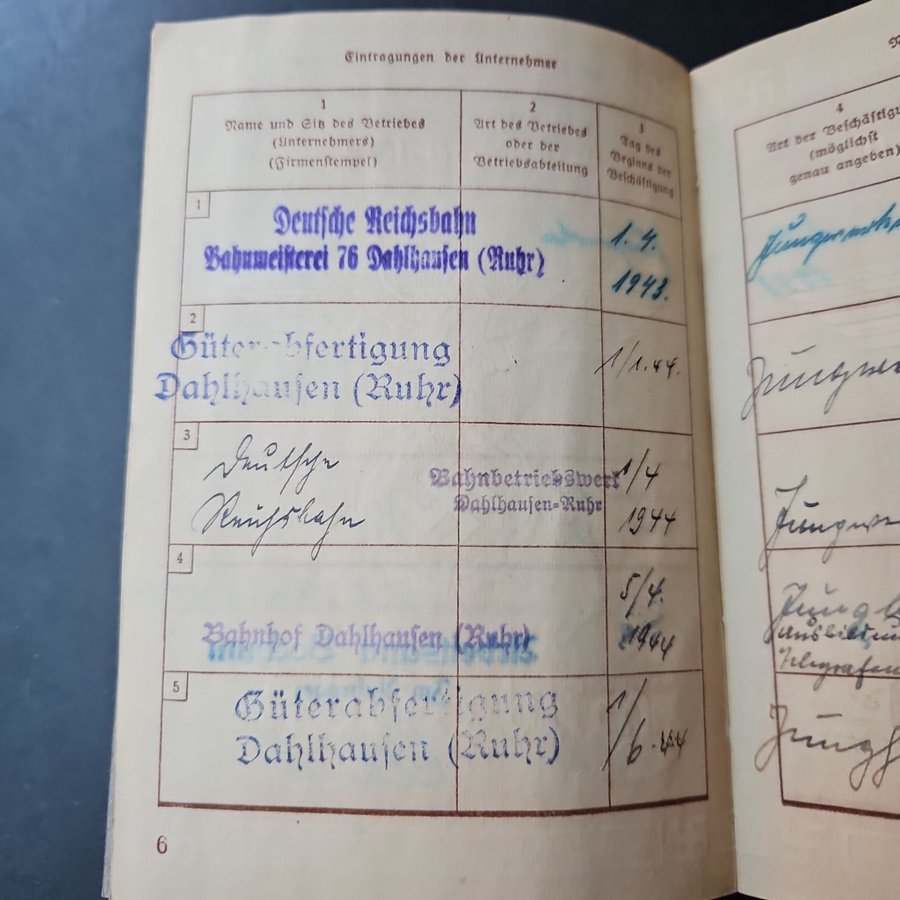 Eintragungen der Unternehmer
1
Name und Sitz des Betriebes
(Unternehmers)
(Firmenstempel)
2
Art des Betriebes
oder der
Betriebsabteilung
3
Tag des
Beginns der
Beschäftigung
4
Art der Beschäftigu
(möglichst
genau angeben)
1
Deutsche Reichsbahn
Bahnmeisterei 76 Dahlhausen (Ruhr)
1.4.
1943.
2
Güterabfertigung
Dahlhausen (Ruhr)
1/1.44.
3
Deutsche
Reichsbahn
Bahnbetriebswerk
Dahlhausen-Ruhr
1/4
1944
4
Bahnhof Dahlhausen (Ruhr)
5/4.
1944
5
Güterabfertigung
Dahlhausen (Ruhr)
1/6.44
6